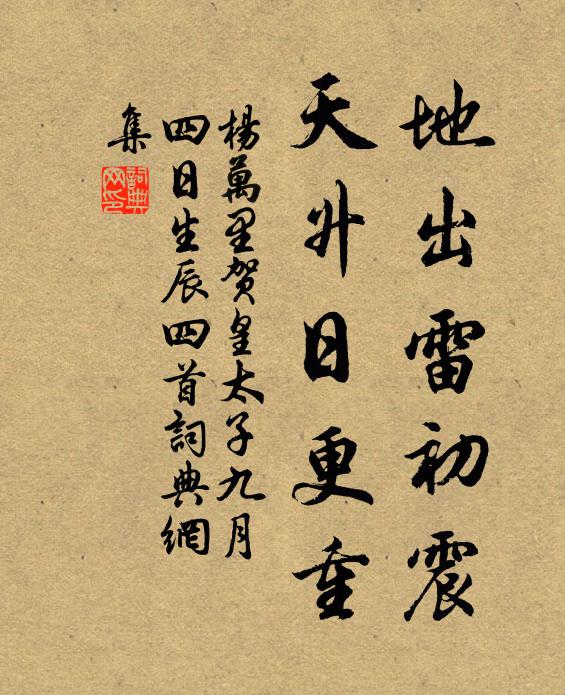 地出雷初震
天升日更重
楊萬里賀皇太子九月
四日生辰四首詞典網
集
詞典
网印